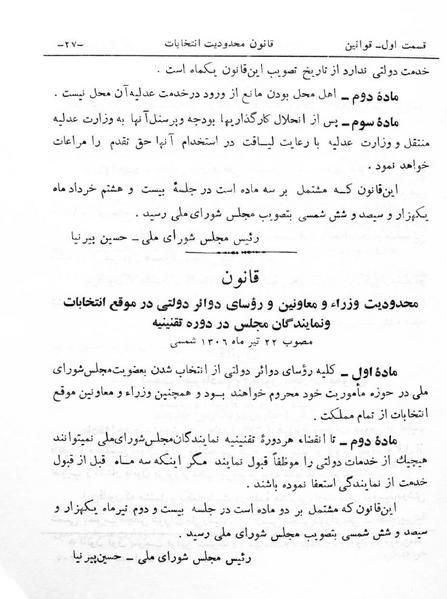 قسمت اول ـ قوانین
قانون محدودیت انتخابات
-۲۷-
خدمت دولتی ندارد از تاریخ تصویب این‌قانون یکماه است .
مادهٔ دوم ـ اهل محل بودن مانع از ورود درخدمت عدلیه‌آن محل نیست .
مادهٔ سوم ـ پس از انحلال کارگذاریها بودجه وپرسنل‌آنها به وزارت عدلیه
منتقل و وزارت عدلیه با رعایت لیاقت در استخدام آنها حق تقدم را مراعات
خواهد نمود .
این‌قانون که مشتمل بر سه ماده است در جلسهٔ بیست و هشتم خرداد ماه
یکهزار و سیصد و شش شمسی بتصویب مجلس شورای ملی رسید .
رئیس مجلس شورای ملی ـ حسین پیرنیا
قانون
محدودیت وزراء و معاونین و رؤسای دوائر دولتی در موقع انتخابات
ونمایندگان مجلس در دوره تقنینیه
مصوب ۲۲ تیر ماه ۱۳۰۶ شمسی
مادهٔ اول ـ کلیه رؤسای دوائر دولتی از انتخاب شدن بعضویت‌مجلس‌شورای
ملی در حوزه مأموریت خود محروم خواهند بود و همچنین وزراء و معاونین موقع
انتخابات از تمام مملکت .
مادهٔ دوم ـ تا انقضاء هردورهٔ تقنینیه نمایندگان‌مجلس‌شورای‌ملی نمیتوانند
هیچیك از خدمات دولتی را موظفاً قبول نمایند مگر اینکه سه ماه قبل از قبول
خدمت از نمایندگی استعفا نموده باشند .
این‌قانون که مشتمل بر دو ماده است در جلسه بیست و دوم تیرماه یکهزار و
سیصد و شش شمسی بتصویب مجلس شورای ملی رسید .
رئیس مجلس شورای ملی ـ حسین‌پیرنیا